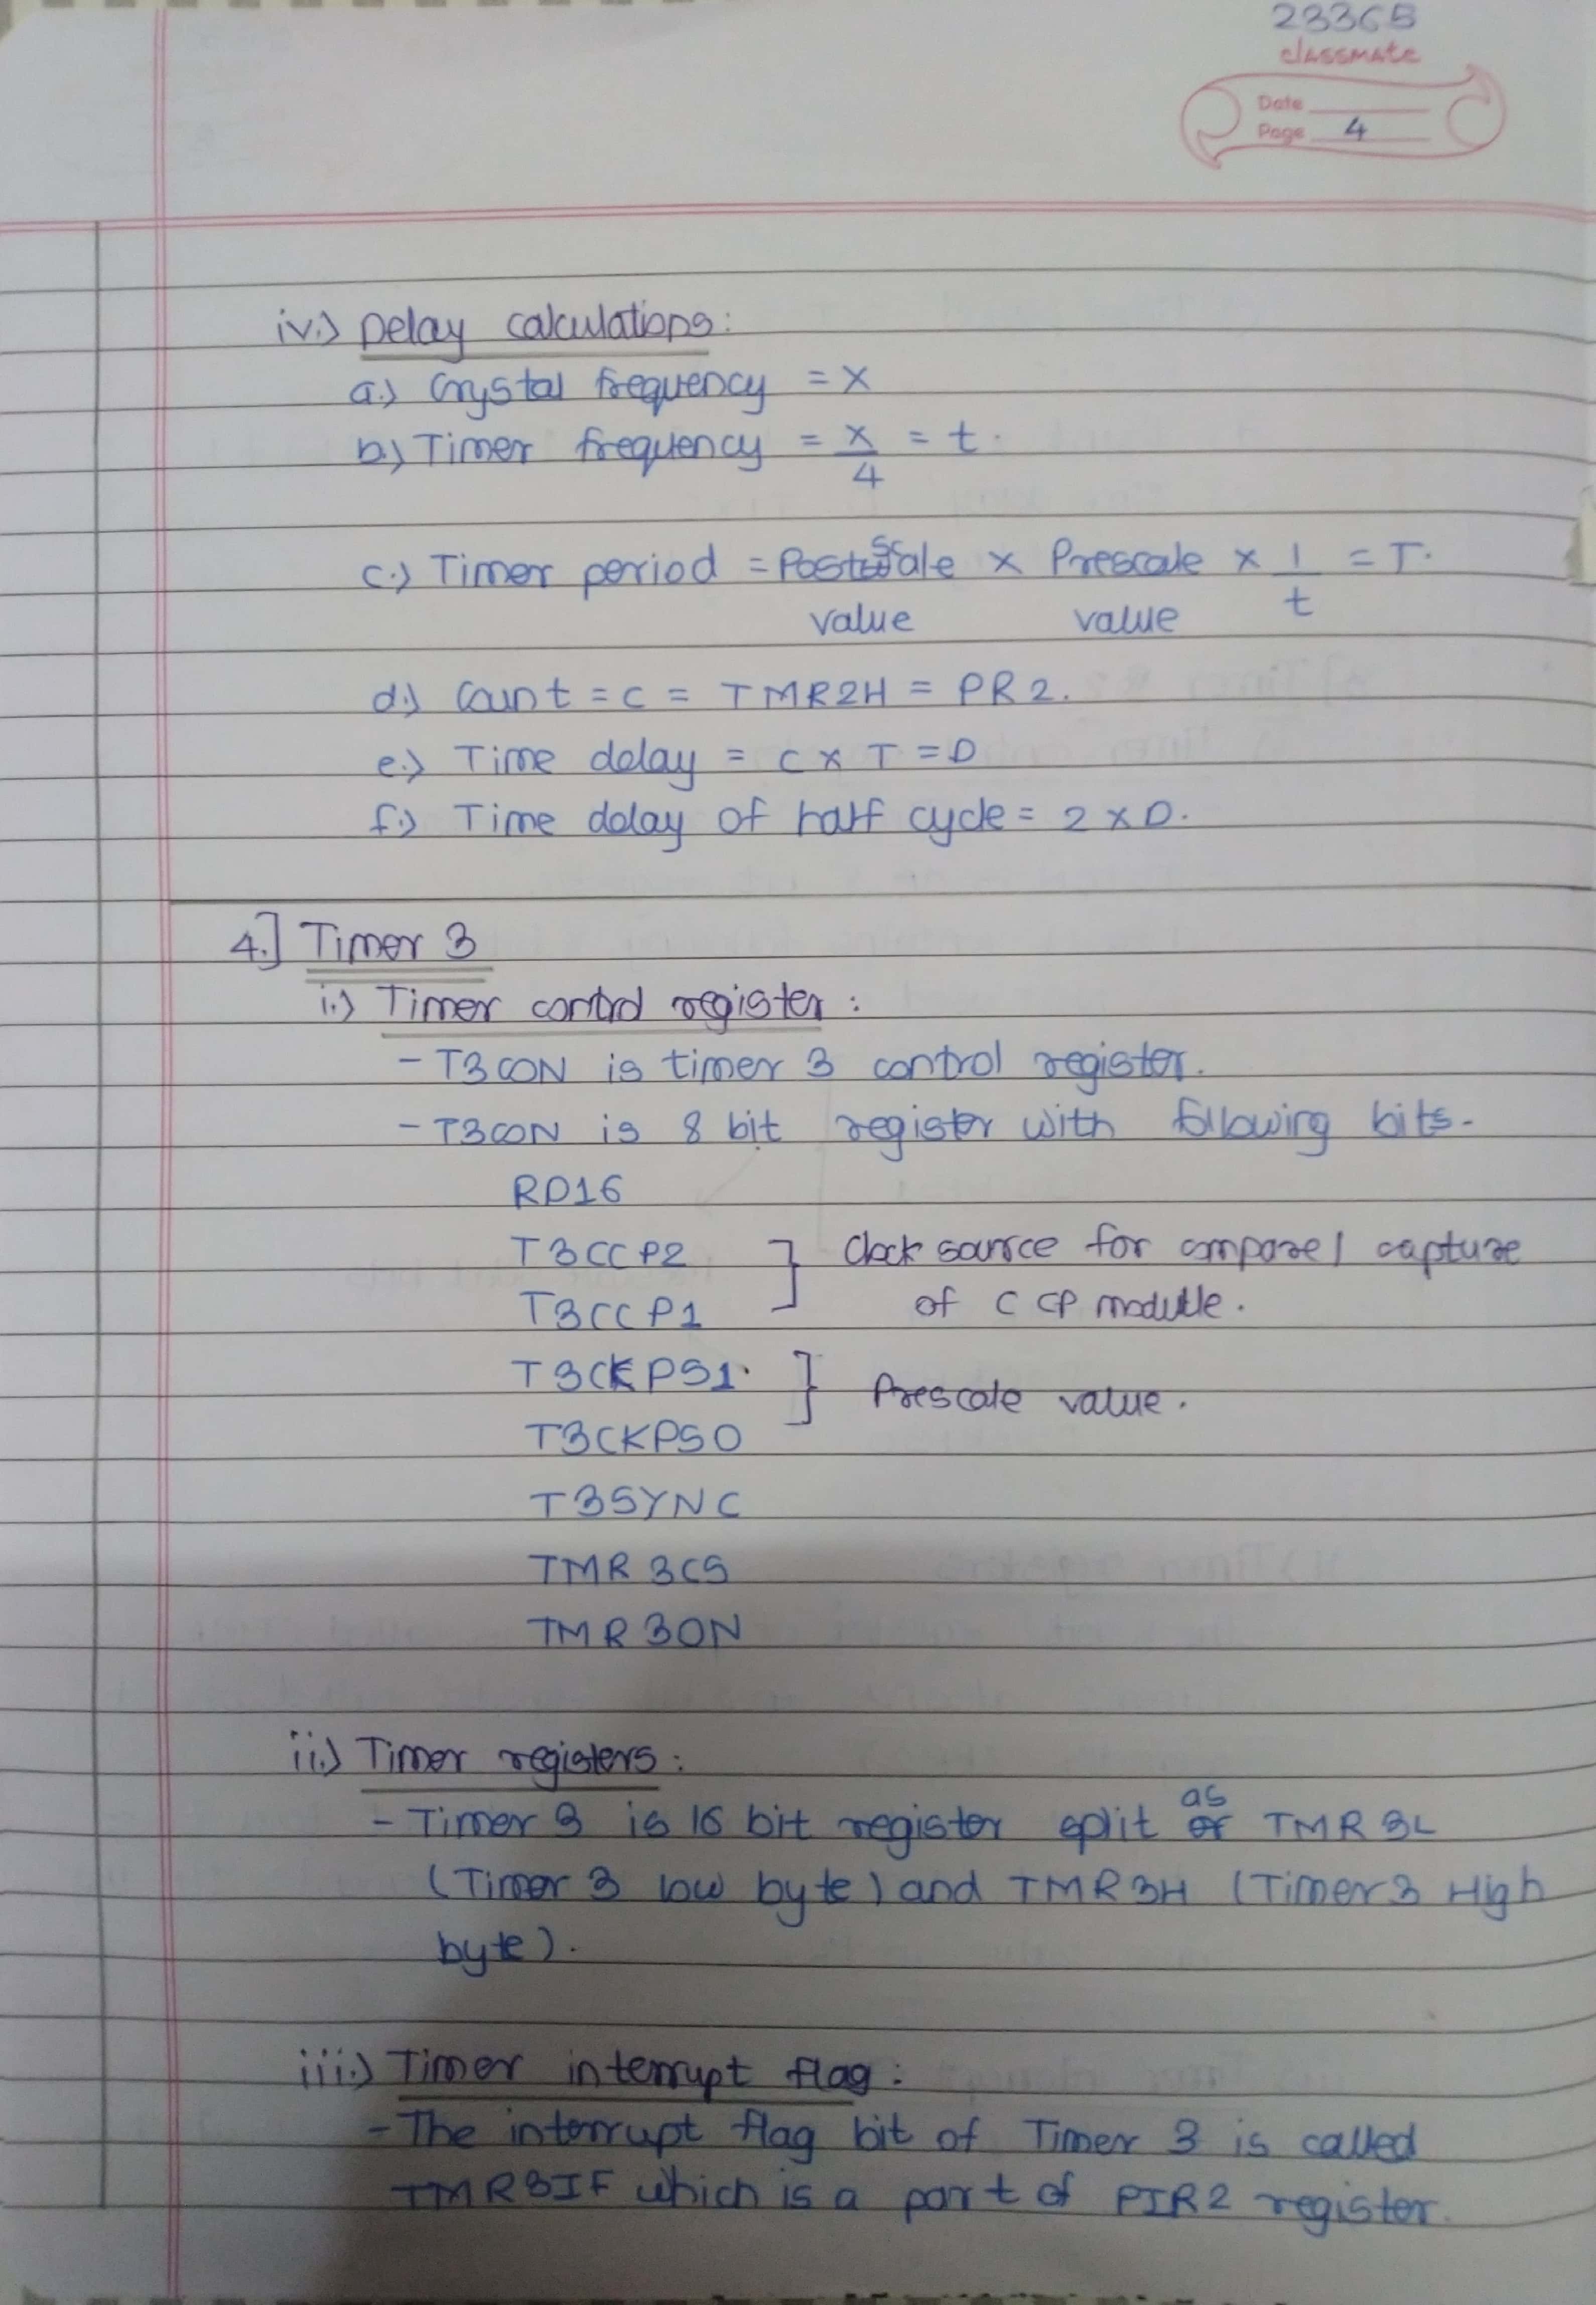 23365
classmate
Date
Page 4
iv.) Delay calculations:
a.) Crystal frequency = X
b.) Timer frequency = X/4 = t.
c.) Timer period = Postscale value × Prescale value × 1/t = T.
d.) Count = C = TMR2H = PR2.
e.) Time delay = C × T = D
f.) Time delay of half cycle = 2 × D.
4.] Timer 3
i.) Timer control register:
- T3CON is timer 3 control register.
- T3CON is 8 bit register with following bits-
RD16
T3CCP2 ] Clock source for compare/ capture
T3CCP1 of CCP module.
T3CKPS1. } Prescale value.
T3CKPS0
T3SYNC
TMR3CS
TMR3ON
ii.) Timer registers:
- Timer 3 is 16 bit register split as TMR3L
(Timer 3 low byte) and TMR3H (Timer 3 High
byte).
iii.) Timer interrupt flag:
- The interrupt flag bit of Timer 3 is called
TMR3IF which is a part of PIR2 register.